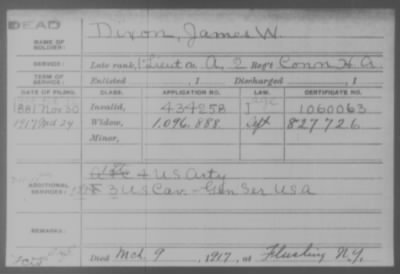 DEAD
NAME OF SOLDIER: Dixon, James W.
SERVICE: Late rank, 1" Lieut Co. A, 2 Reg't Conn H. A.
TERM OF SERVICE: Enlisted , 1 Discharged , 1
DATE OF FILING. CLASS. APPLICATION NO. LAW. CERTIFICATE NO.
1881 Nov 30 Invalid, 434258 1060063
1917 Mch 29 Widow, 1.096.888 827726
Minor,
4 US Arty
ADDITIONAL SERVICES: F 3 US Cav - Gen Ser USA
REMARKS:
Died Mch 9, 1917, at Flushing N.Y.